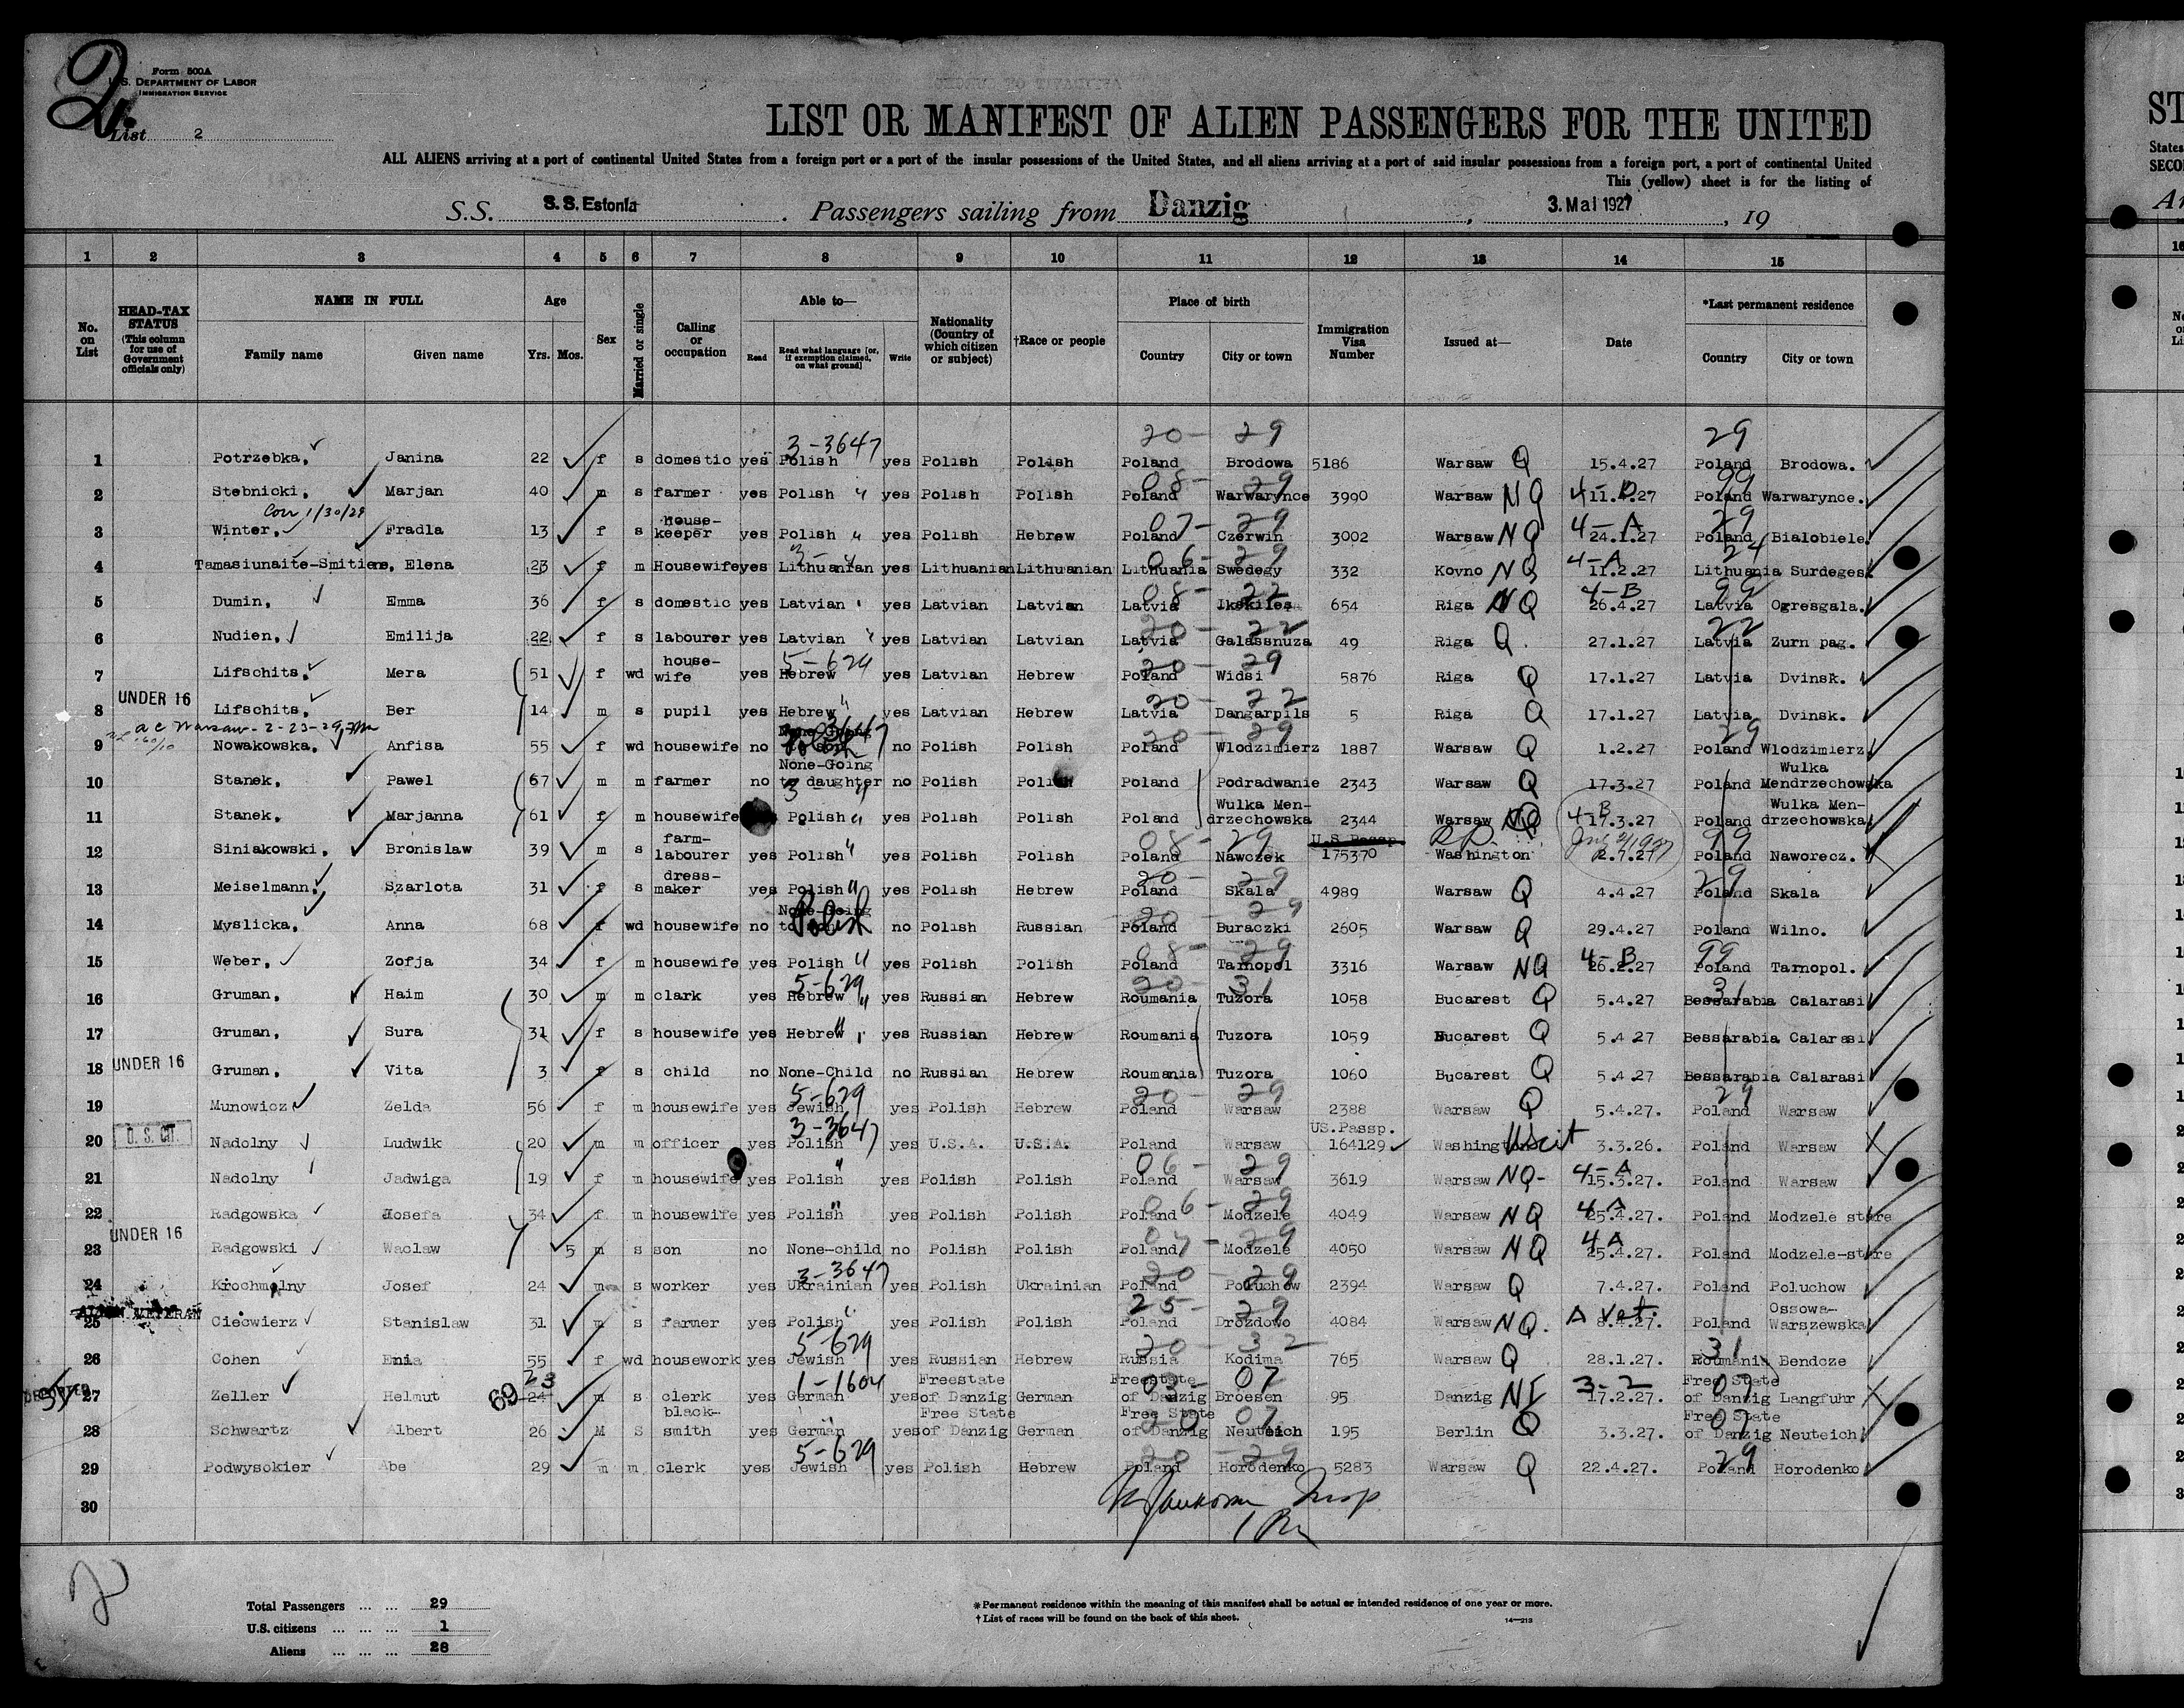 Form 500A
U.S. DEPARTMENT OF LABOR
IMMIGRATION SERVICE
List 2
LIST OR MANIFEST OF ALIEN PASSENGERS FOR THE UNITED
ALL ALIENS arriving at a port of continental United States from a foreign port or a port of the insular possessions of the United States, and all aliens arriving at a port of said insular possessions from a foreign port, a port of continental United
This (yellow) sheet is for the listing of
S.S. S.S. Estonia. Passengers sailing from Danzig, 3. Mai 1927, 19
1 2 3 4 5 6 7 8 9 10 11 12 13 14 15
No. on List
HEAD-TAX STATUS (This column for use of Government officials only)
NAME IN FULL
Family name Given name
Age
Yrs. Mos.
Sex
Married or single
Calling or occupation
Able to—
Read
Read what language [or, if exemption claimed, on what ground]
Write
Nationality (Country of which citizen or subject)
†Race or people
Place of birth
Country City or town
Immigration Visa Number
Issued at—
Date
*Last permanent residence
Country City or town
3-3647 20- 29 29
1 Potrzebka, Janina 22 f s domestic yes Polish yes Polish Polish Poland Brodowa 5186 Warsaw Q 15.4.27 Poland Brodowa.
08- 29 99
2 Stebnicki, Marjan 40 m s farmer yes Polish yes Polish Polish Poland Warwarynce 3990 Warsaw NQ Poland Warwarynce.
Con 1/30/29
07- 29 4-A 29
3 Winter, Fradla 13 f s house-keeper yes Polish yes Polish Hebrew Poland Czerwin 3002 Warsaw NQ 24.1.27 Poland Bialobiele
06- 29 4-A 24
4 Tamasiunaite-Smitiene, Elena 23 f m Housewife yes Lithuanian yes Lithuanian Lithuanian Lithuania Swedegy 332 Kovno NQ 11.2.27 Lithuania Surdeges
08- 22 4-B 99
5 Dumin, Emma 36 f s domestic yes Latvian yes Latvian Latvian Latvia Ikskiles 654 Riga NQ 26.4.27 Latvia Ogresgala.
20- 22 22
6 Nudien, Emilija 22 f s labourer yes Latvian yes Latvian Latvian Latvia Galassnuza 49 Riga Q. 27.1.27 Latvia Zurn pag.
5-629 20- 29
7 Lifschits, Mera 51 f wd house-wife yes Hebrew yes Latvian Hebrew Poland Widsi 5876 Riga Q 17.1.27 Latvia Dvinsk.
UNDER 16 20- 22
8 Lifschits, Ber 14 m s pupil yes Hebrew yes Latvian Hebrew Latvia Dangarpils 5 Riga Q 17.1.27 Latvia Dvinsk.
20- 29 29
9 Nowakowska, Anfisa 55 f wd housewife no no Polish Polish Poland Wlodzimierz 1887 Warsaw Q 1.2.27 Poland Wlodzimierz.
10 Stanek, Pawel 67 m m farmer no None-Going to daughter no Polish Polish Poland Podradwanie 2343 Warsaw Q 17.3.27 Poland Wulka Mendrzechowska
11 Stanek, Marjanna 61 f m housewife Polish yes Polish Polish Poland Wulka Men-drzechowska 2344 Warsaw NQ 4-B 17.3.27 Poland Wulka Men-drzechowska.
08- 29 99
12 Siniakowski, Bronislaw 39 m s farm-labourer yes Polish yes Polish Polish Poland Nawozek U.S.Passp 175370 Washington 2.7.27 Poland Naworecz.
20- 29 29
13 Meiselmann, Szarlota 31 f s dress-maker yes Polish yes Polish Hebrew Poland Skala 4989 Warsaw Q 4.4.27 Poland Skala
20- 29
14 Myslicka, Anna 68 f wd housewife no None-Going Polish no Polish Russian Poland Buraczki 2605 Warsaw Q 29.4.27 Poland Wilno.
08- 29 4-B 99
15 Weber, Zofja 34 f m housewife yes Polish yes Polish Polish Poland Tarnopol 3316 Warsaw NQ 26.2.27 Poland Tarnopol.
5-629 20- 31 31
16 Gruman, Haim 30 m m clark yes Hebrew yes Russian Hebrew Roumania Tuzora 1058 Bucarest Q 5.4.27 Bessarabia Calarasi
17 Gruman, Sura 31 f s housewife yes Hebrew yes Russian Hebrew Roumania Tuzora 1059 Bucarest Q 5.4.27 Bessarabia Calarasi
UNDER 16
18 Gruman, Vita 3 f s child no None-Child no Russian Hebrew Roumania Tuzora 1060 Bucarest Q 5.4.27 Bessarabia Calarasi
5-629 20- 29 29
19 Munowicz Zelda 56 f m housewife yes Jewish yes Polish Hebrew Poland Warsaw 2388 Warsaw Q 5.4.27. Poland Warsaw
U.S. CIT. 3-3647 US.Passp.
20 Nadolny Ludwik 20 m m officer yes Polish yes U.S.A. U.S.A. Poland Warsaw 164129 Washington UScit 3.3.26. Poland Warsaw
06- 29 4-A
21 Nadolny Jadwiga 19 f m housewife yes Polish yes Polish Polish Poland Warsaw 3619 Warsaw NQ- 15.3.27. Poland Warsaw
06- 29 4 A
22 Radgowska Josefa 34 f m housewife yes Polish yes Polish Polish Poland Modzele 4049 Warsaw NQ 25.4.27. Poland Modzele stare
UNDER 16 07- 29 4 A
23 Radgowski Waclaw 5 m s son no None-child no Polish Polish Poland Modzele 4050 Warsaw NQ 25.4.27. Poland Modzele-stare
3-3647 20- 29
24 Krochmalny Josef 24 m s worker yes Ukrainian yes Polish Ukrainian Poland Poluchow 2394 Warsaw Q 7.4.27. Poland Poluchow
ALIEN VETERAN 25- 29 A Vet.
25 Ciecwierz Stanislaw 31 m s farmer yes Polish yes Polish Polish Poland Drozdowo 4084 Warsaw NQ. 8.4.27. Poland Ossowa-Warszewska
5-629 20- 32 31
26 Cohen Enia 55 f wd housework yes Jewish yes Russian Hebrew Russia Kodima 765 Warsaw Q 28.1.27. Roumania Bendcze
DEPORTED 23 1-1604 03- 07 3-2 07
27 Zeller Helmut 24 m s clerk yes German yes Freestate of Danzig German Freestate of Danzig Broesen 95 Danzig NI 17.2.27. Free State of Danzig Langfuhr
20 07 07
28 Schwartz Albert 26 M S black-smith yes German yes Free State of Danzig German Free State of Danzig Neuteich 195 Berlin Q 3.3.27. Free State of Danzig Neuteich
5-629 20- 29 29
29 Podwysokier Abe 29 m m clerk yes Jewish yes Polish Hebrew Poland Horodenko 5283 Warsaw Q 22.4.27. Poland Horodenko
30
Total Passengers 29
U.S. citizens 1
Aliens 28
*Permanent residence within the meaning of this manifest shall be actual or intended residence of one year or more.
†List of races will be found on the back of this sheet.
14—213
ST
States
SECO